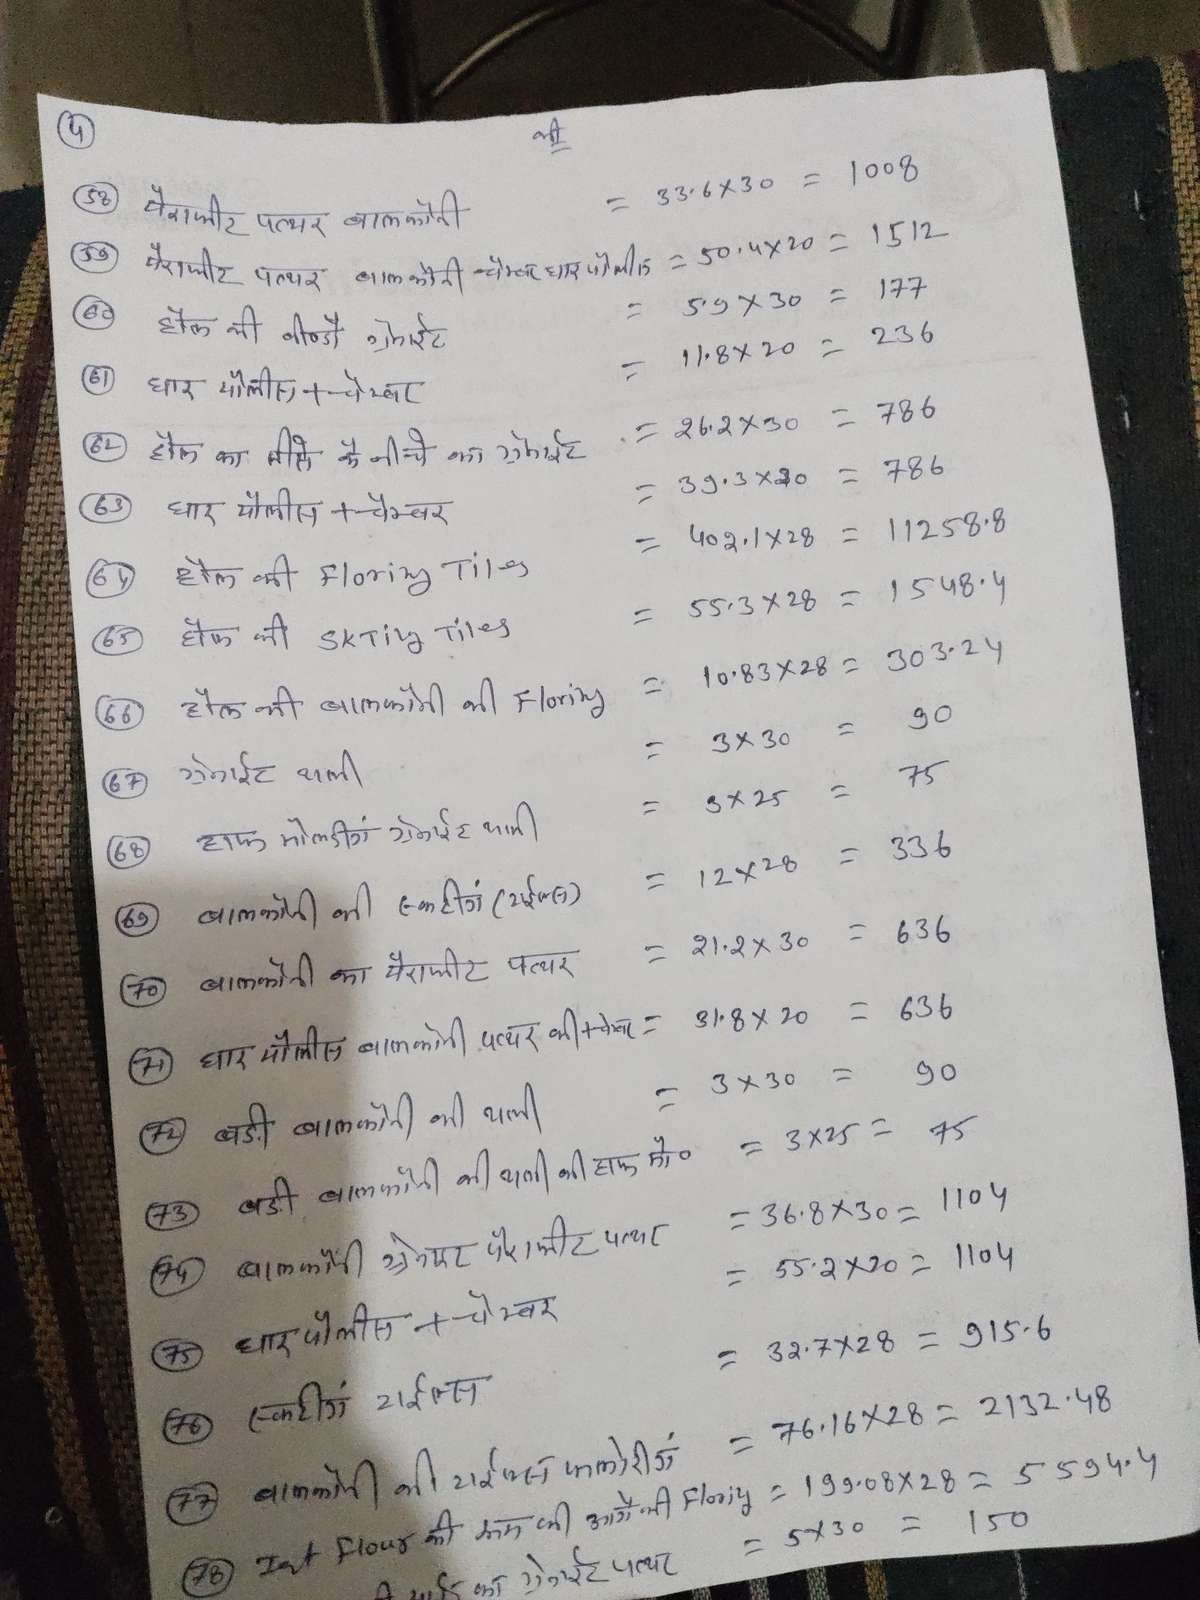 4
श्री
58 पैराफीट पत्थर बालकोनी = 33.6x30 = 1008
59 पैराफीट पत्थर बालकोनी चेम्बर धार पोलीस = 50.4x20 = 1512
60 हौल की वीन्डो ग्रेनाईट = 5.9x30 = 177
61 धार पोलीस + चेम्बर = 11.8x20 = 236
62 हौल का के नीचे का ग्रेनाईट = 26.2x30 = 786
63 धार पोलीस + चेम्बर = 39.3x20 = 786
64 हौल की Floring Tiles = 402.1x28 = 11258.8
65 हौल की SKTing Tiles = 55.3x28 = 1548.4
66 हौल की बालकोनी की Floring = 10.83x28 = 303.24
67 ग्रेनाईट थाली = 3x30 = 90
68 हाफ मोलडींग ग्रेनाईट थाली = 3x25 = 75
69 बालकोनी की स्कटींग (टाईल्स) = 12x28 = 336
70 बालकोनी का पैराफीट पत्थर = 21.2x30 = 636
71 धार पोलीस बालकोनी पत्थर की + चेम्बर = 31.8x20 = 636
72 बडी बालकोनी की थाली = 3x30 = 90
73 बडी बालकोनी की थाली की हाफ मो० = 3x25 = 75
74 बालकोनी ग्रेनाइट पैराफीट पत्थर = 36.8x30 = 1104
75 धार पोलीस + चेम्बर = 55.2x20 = 1104
76 स्कटींग टाईल्स = 32.7x28 = 915.6
77 बालकोनी की टाईल्स फलोरींग = 76.16x28 = 2132.48
78 Ist Flour की रूम की आगे की Floring = 199.08x28 = 5594.4
का ग्रेनाईट पत्थर = 5x30 = 150